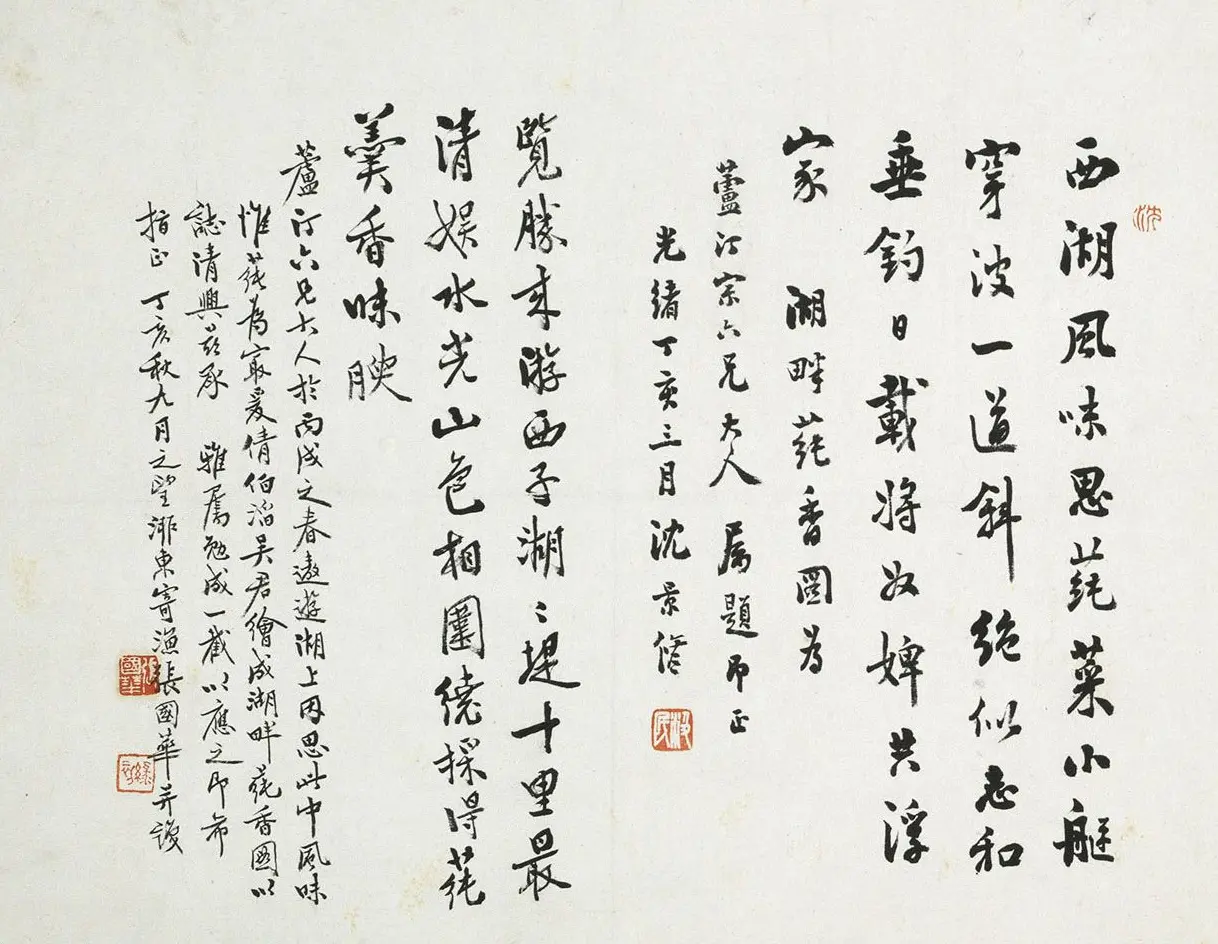 西湖風味思蒓菜小艇
穿波一道斜絶似志和
垂釣日載將奴婢共浮
家 湖畔蒓香圖爲
蘆汀宗六兄大人 屬題即正
光緒丁亥三月沈景修
覽勝來游西子湖湖堤十里最
清娱水光山色相圍繞採得蒓
羹香味腴
蘆汀六兄大人於丙戌之春遨遊湖上因思此中風味
惟蒓爲寂爰倩伯滔吴君繪成湖畔蒓香圖以
誌清興茲承 雅屬勉成一截以應之即希
指正 丁亥秋九月之望
寄漁張國華并識
沈